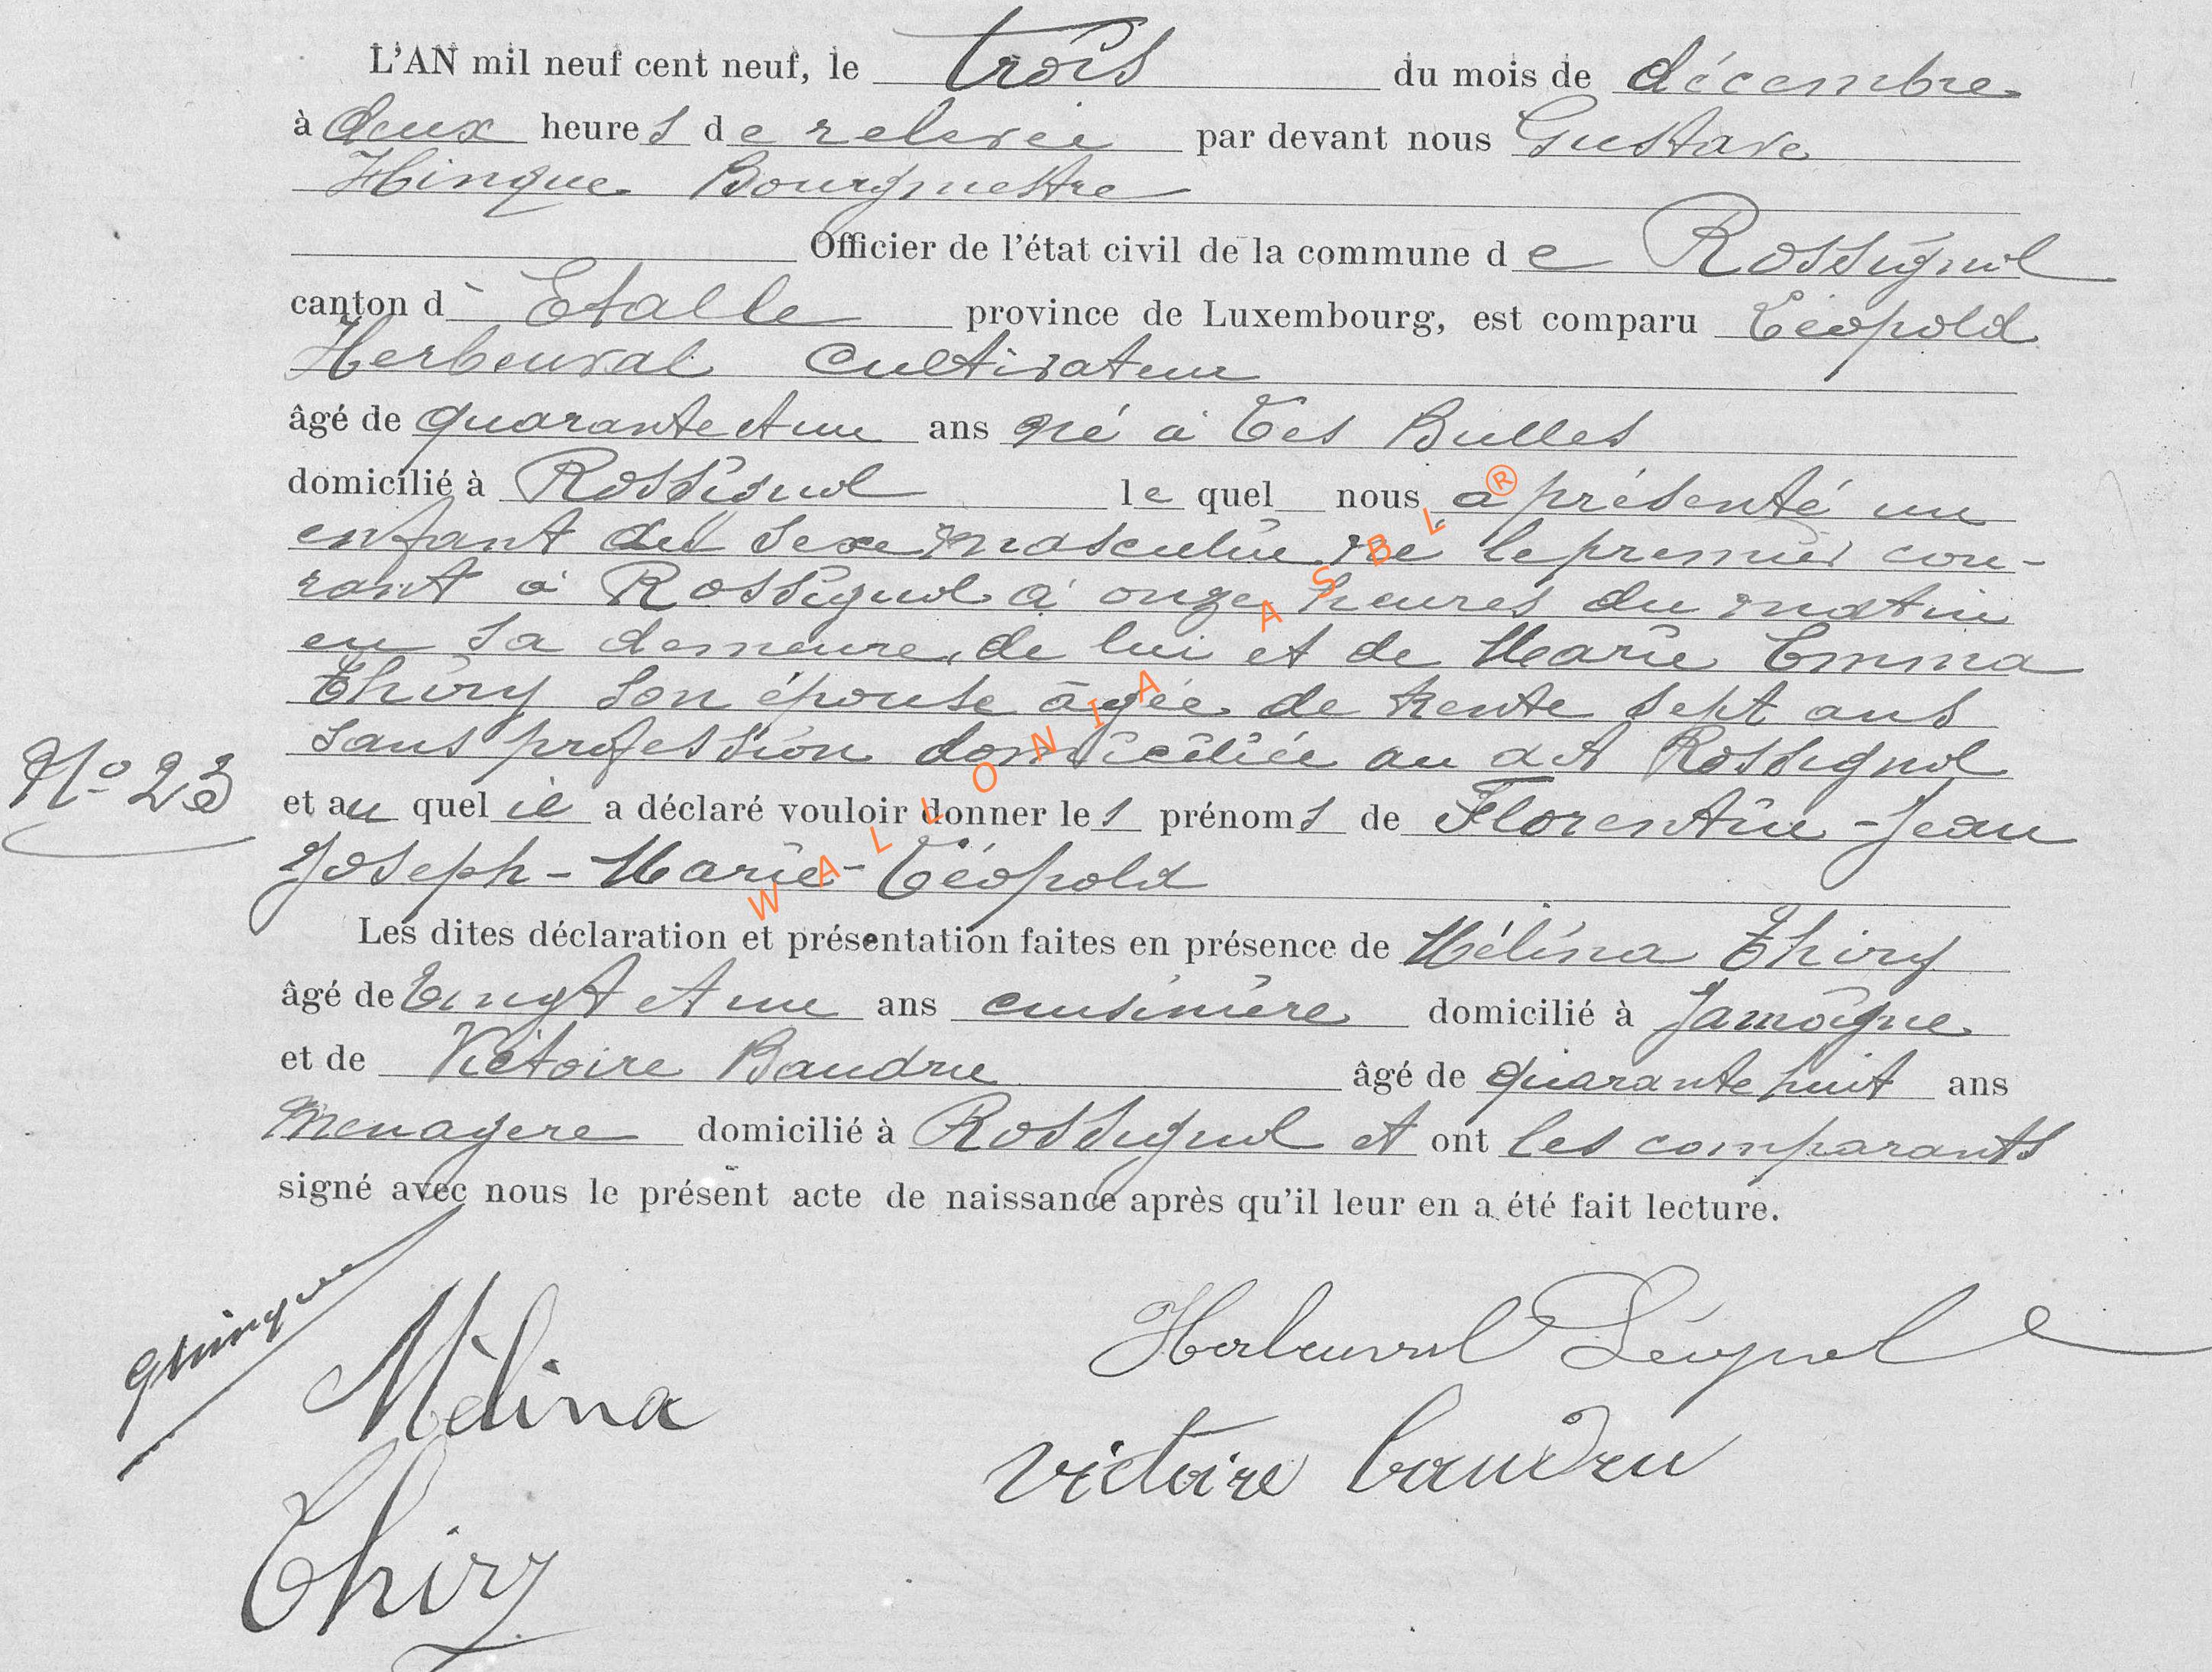 L'AN mil neuf cent neuf, le trois du mois de décembre
à deux heures de relevée par devant nous Gustave
Hinque Bourgmestre
Officier de l'état civil de la commune de Rossignol
canton d' Etalle province de Luxembourg, est comparu Léopold
Herbeuval Cultivateur
âgé de quarante et un ans né à Les Bulles
domicilié à Rossignol le quel nous a présenté un
enfant du sexe masculin né le premier cou-
rant à Rossignol à onze heures du matin
en sa demeure, de lui et de Marie Emma
Thiry son épouse âgée de trente sept ans
sans profession domiciliée au dit Rossignol
N° 23
et au quel il a déclaré vouloir donner les prénoms de Florentin-Jean
Joseph-Marie-Léopold
Les dites déclaration et présentation faites en présence de Mélina Thiry
âgé de Vingt et un ans cuisinière domicilié à Jamoigne
et de Victoire Baudru âgé de quarante huit ans
menagere domicilié à Rossignol et ont les comparants
signé avec nous le présent acte de naissance après qu'il leur en a été fait lecture.
GHinque
Mélina
Thiry
Herbeuval Léopol
victoire baudru
WALLONIA ASBL ®